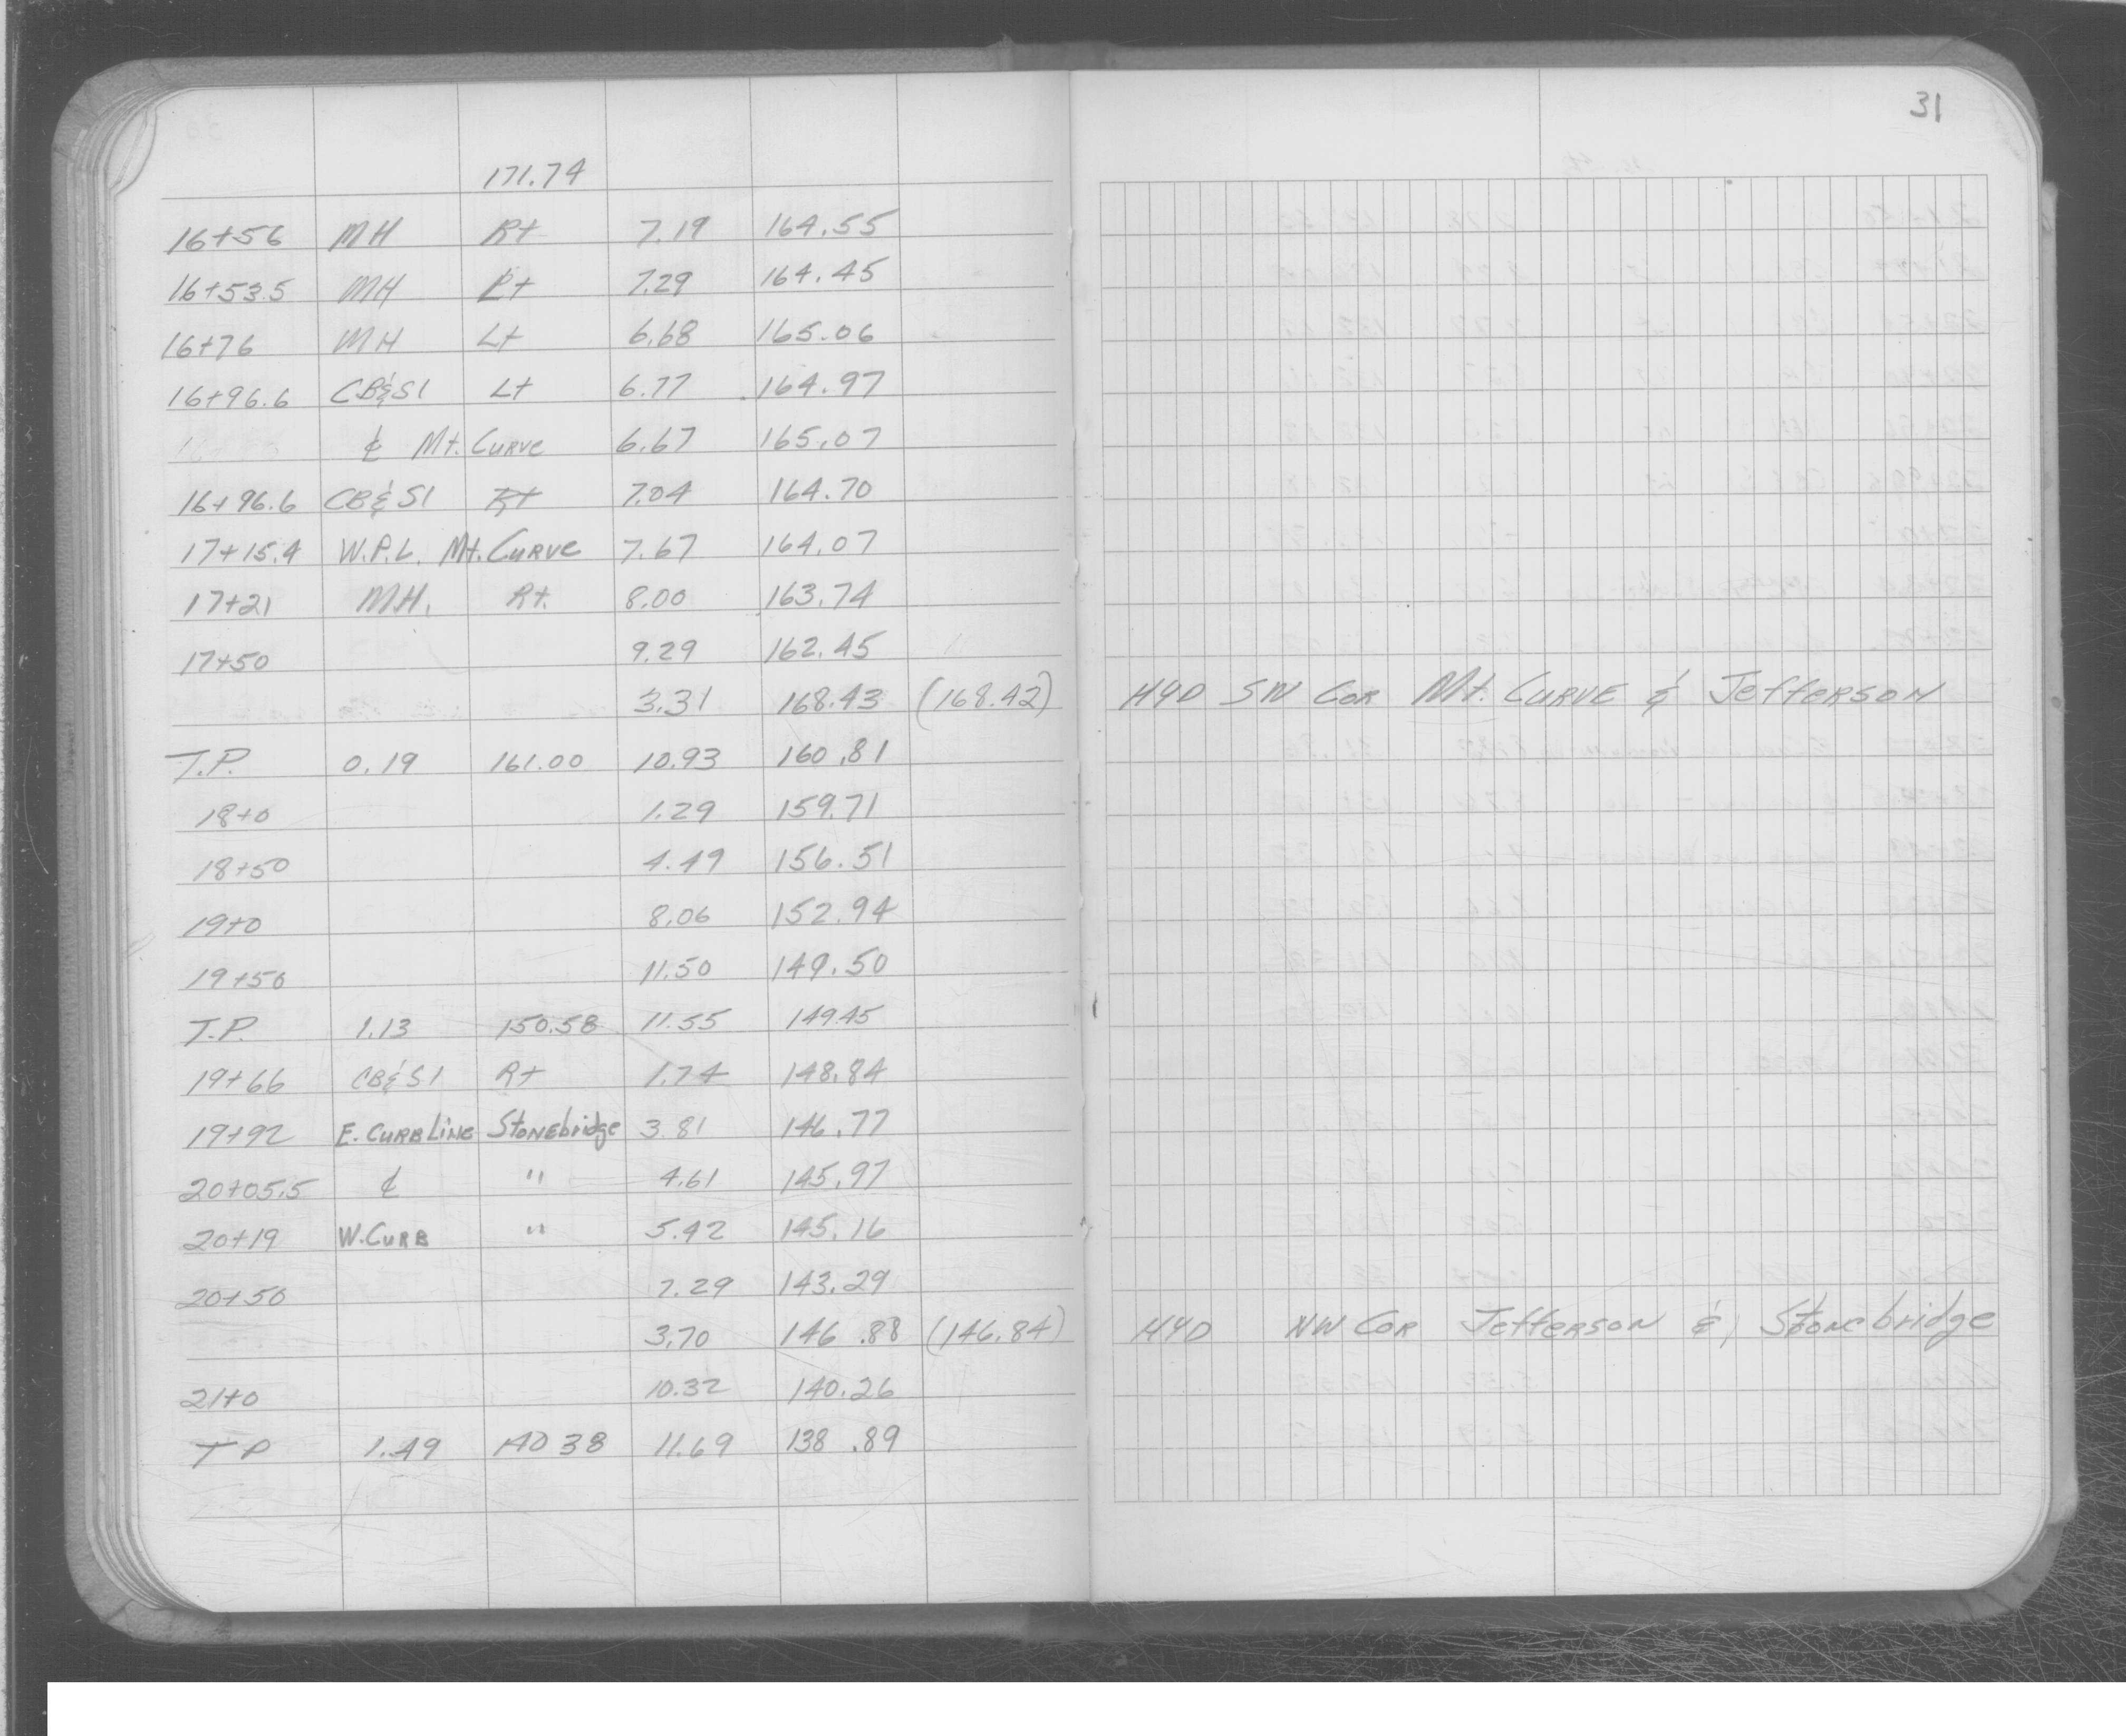 31
171.74
16+56 MH Rt 7.19 164.55
16+53.5 MH Rt 7.29 164.45
16+76 MH Lt 6.68 165.06
16+96.6 CB&SI Lt 6.77 164.97
℄ Mt. Curve 6.67 165.07
16+96.6 CB&SI Rt 7.04 164.70
17+15.4 W.P.L. Mt. Curve 7.67 164.07
17+21 MH. Rt. 8.00 163.74
17+50 9.29 162.45
3.31 168.43 (168.42) HYD SW Cor Mt. Curve & Jefferson
T.P. 0.19 161.00 10.93 160.81
18+0 1.29 159.71
18+50 4.49 156.51
19+0 8.06 152.94
19+50 11.50 149.50
T.P. 1.13 150.58 11.55 149.45
19+66 CB&SI Rt 1.74 148.84
19+92 E. Curb Line Stonebridge 3.81 146.77
20+05.5 ℄ " 4.61 145.97
20+19 W. Curb " 5.42 145.16
20+50 7.29 143.29
3.70 146.88 (146.84) HYD NW Cor Jefferson & Stonebridge
21+0 10.32 140.26
T P 1.49 140 38 11.69 138.89